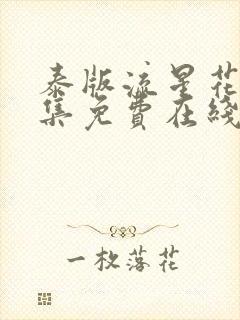 泰版流星花
集免费在线
一枚落花